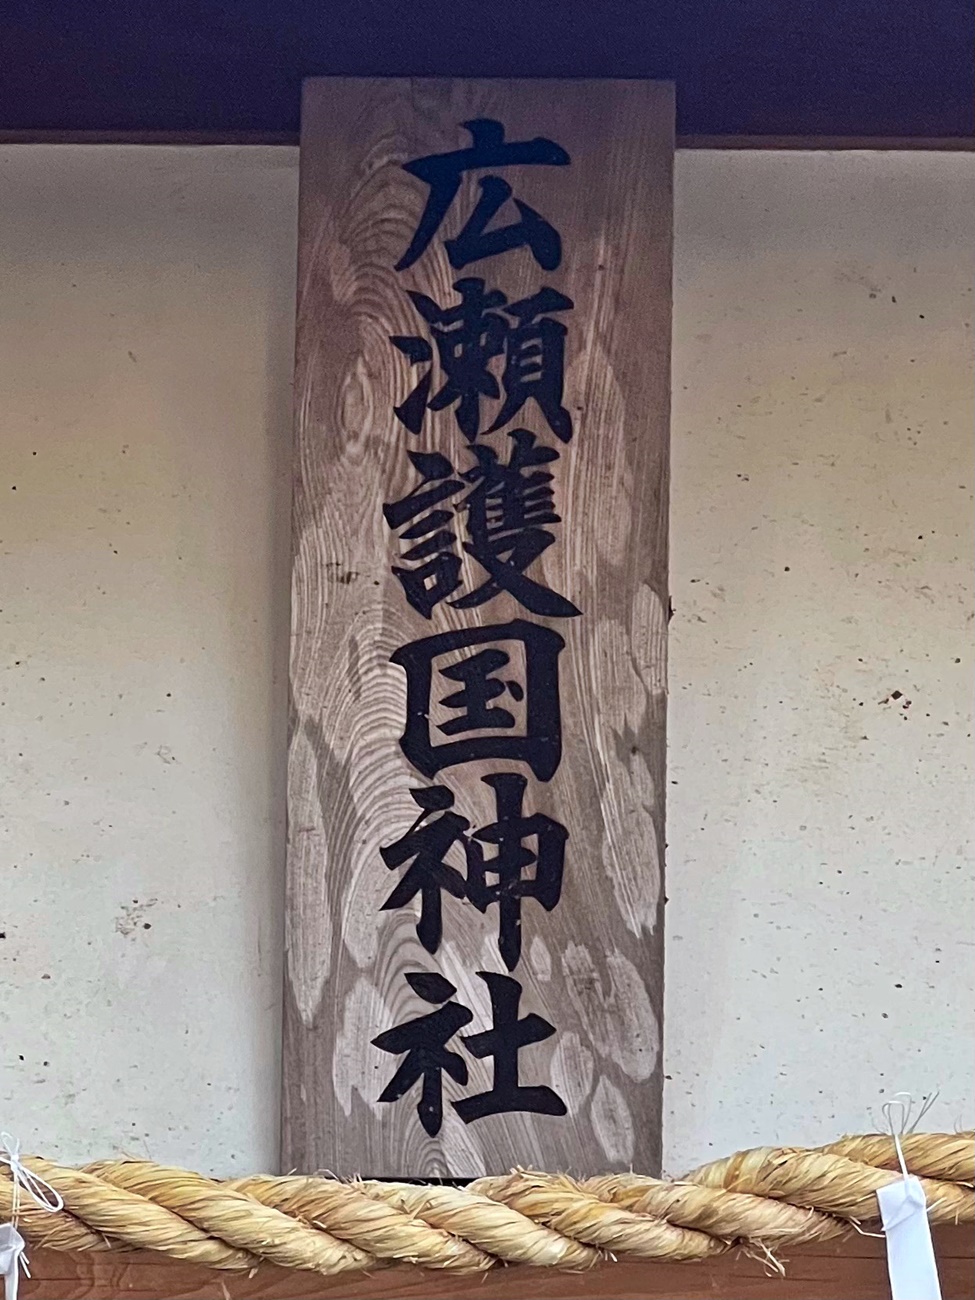 広瀬護国神社